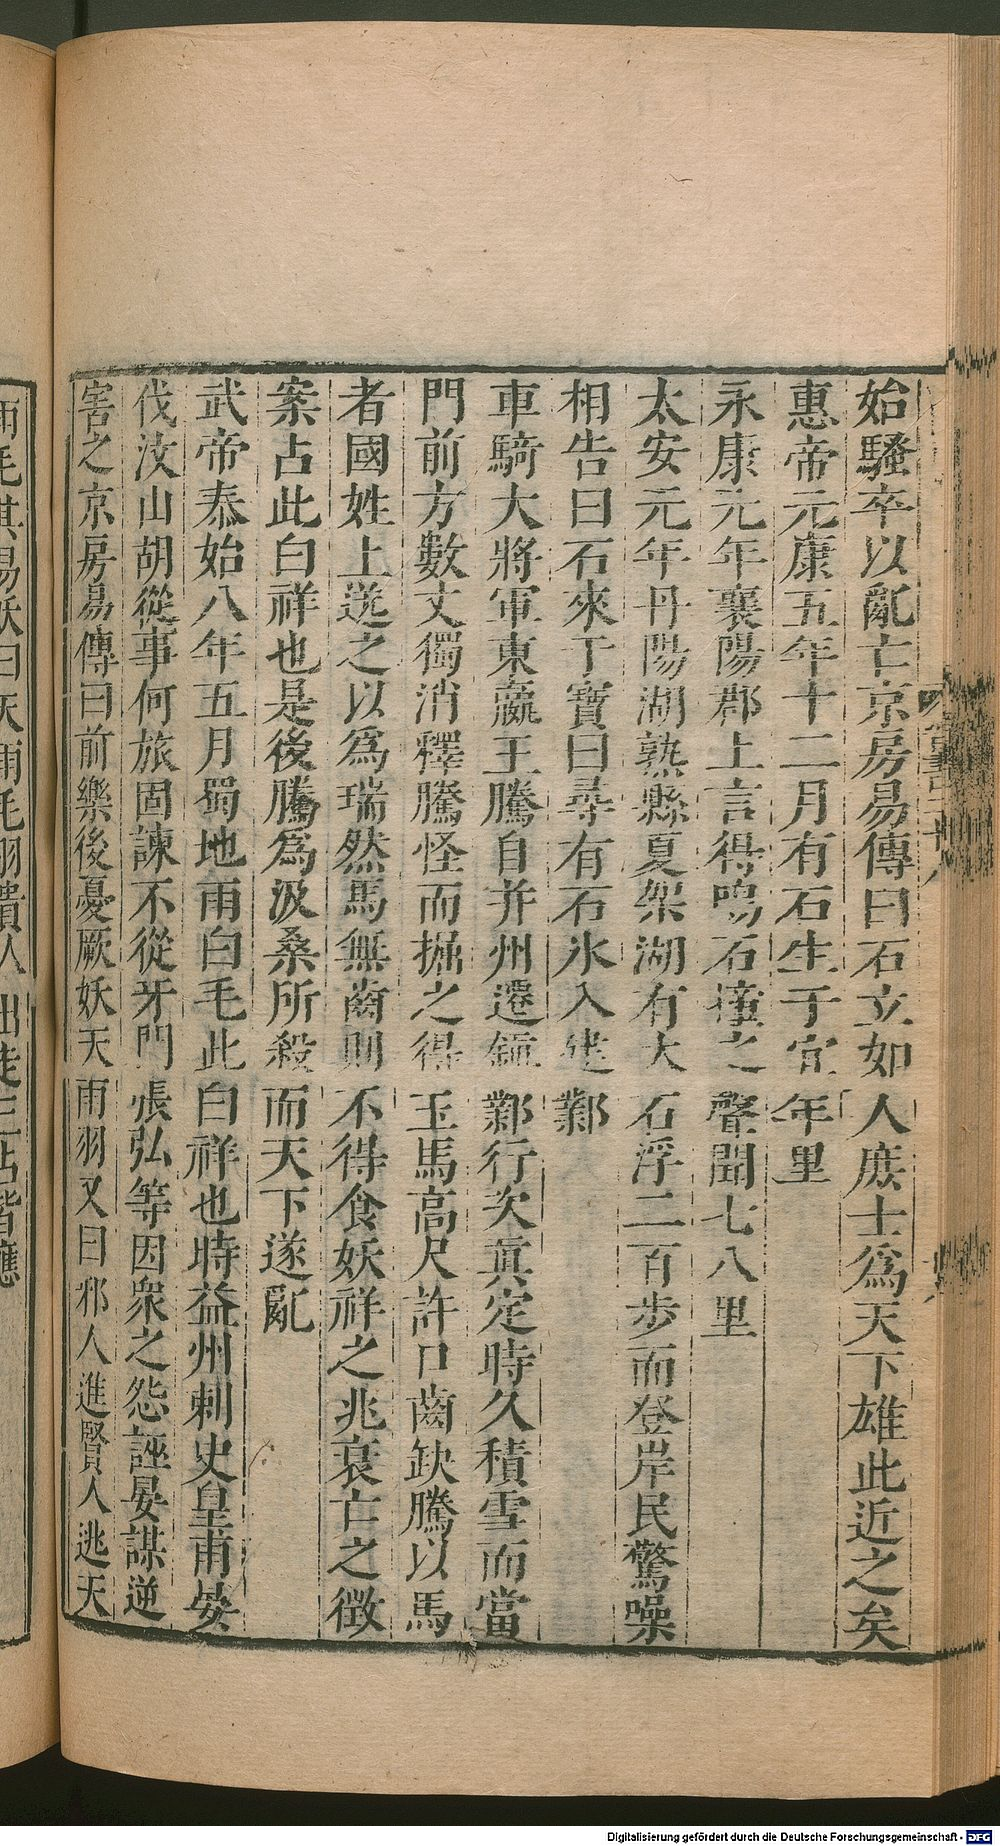 始騷卒以亂亡京房易傳曰石立如人庶士爲天下雄此近之矣
惠帝元康五年十二月有石生于宜年里
永康元年襄陽郡上言得鳴石撞之聲聞七八里
太安元年丹陽湖熟縣夏架湖有大石浮二百步而登岸民驚噪
相告曰石來于寶曰尋有石氷入建鄴
車騎大將軍東嬴王騰自并州遷鎮鄴行次真定時久積雪而當
門前方數丈獨消釋騰怪而掘之得玉馬高尺許口齒缺騰以馬
者國姓上送之以爲瑞然馬無齒則不得食妖祥之兆衰亡之徵
案占此白祥也是後騰爲汲桑所殺而天下遂亂
武帝泰始八年五月蜀地雨白毛此白祥也時益州刺史皇甫晏
伐汶山胡從事何旅固諫不從牙門張弘等因衆之怨誣晏謀逆
害之京房易傳曰前樂後憂厥妖天雨羽又曰邪人進賢人逃天
雨毛其易妖曰天雨毛羽貴人出走三占皆應
Digitalisierung gefördert durch die Deutsche Forschungsgemeinschaft - DFG